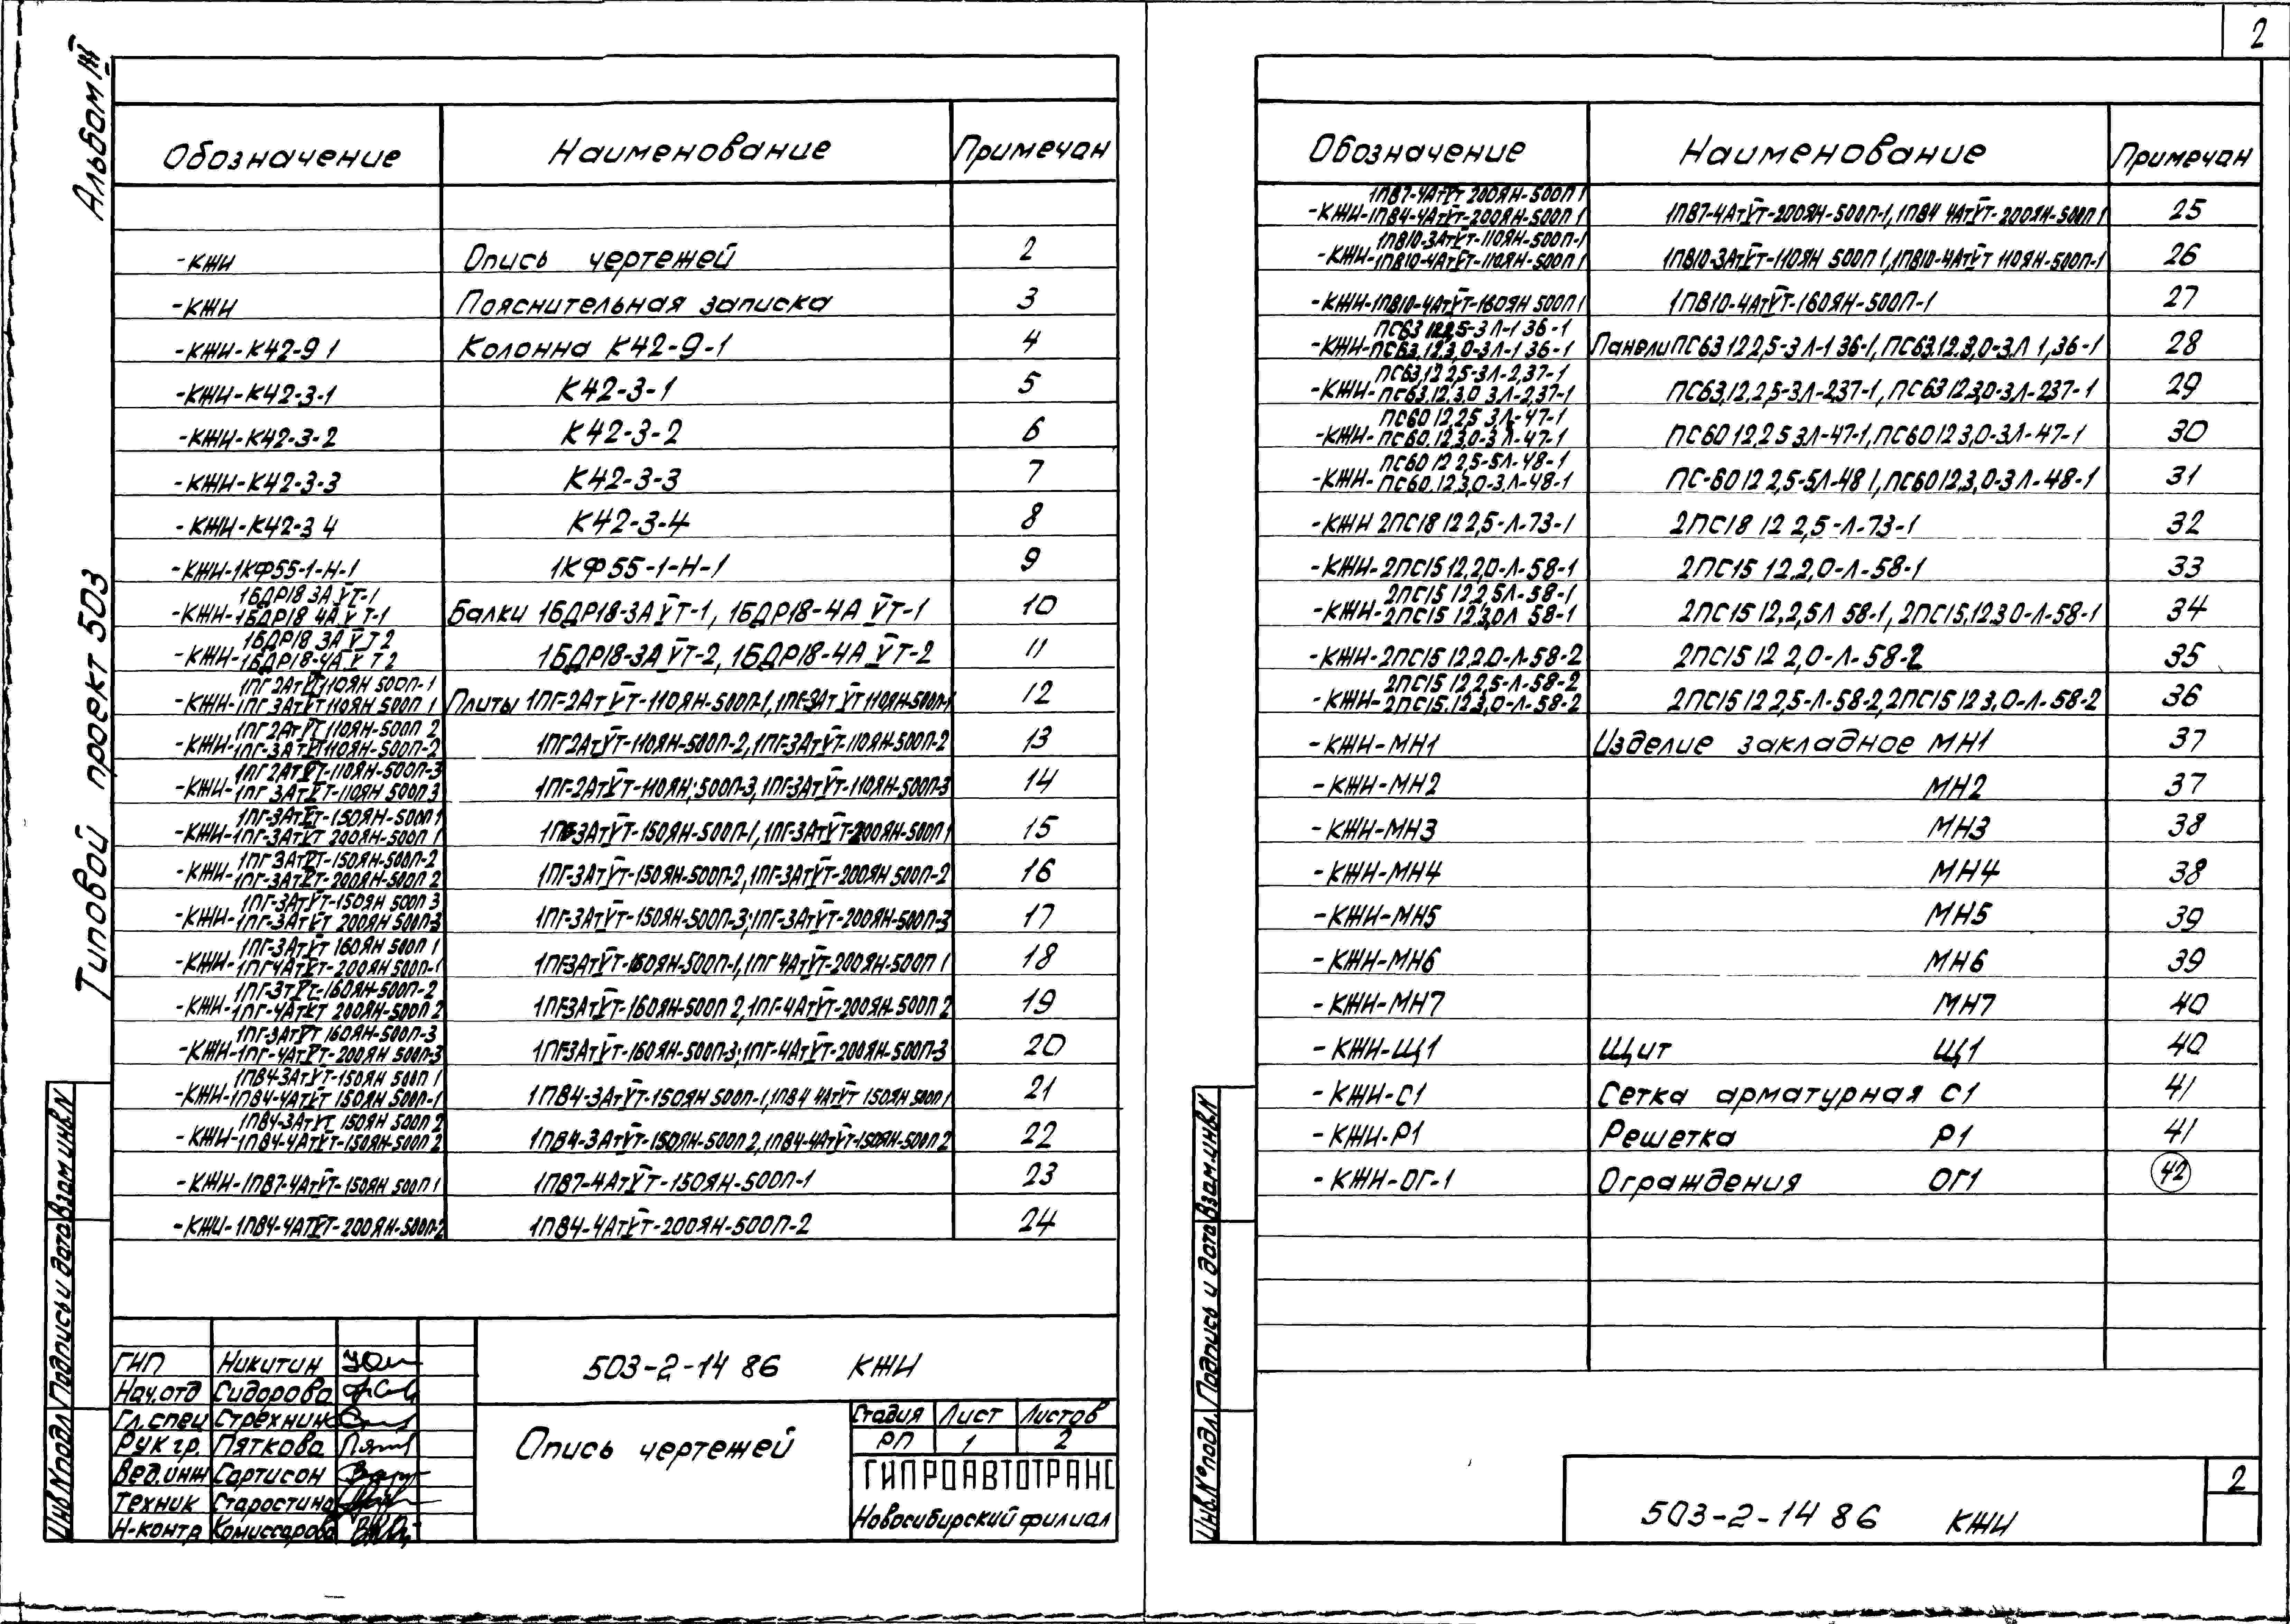 2
Альбом III
Типовой проект 503
Обозначение Наименование Примечан
-КЖИ Опись чертежей 2
-КЖИ Пояснительная записка 3
-КЖИ-К42-9 1 Колонна К42-9-1 4
-КЖИ-К42-3-1 К42-3-1 5
-КЖИ-К42-3-2 К42-3-2 6
-КЖИ-К42-3-3 К42-3-3 7
-КЖИ-К42-3 4 К42-3-4 8
-КЖИ-1КФ55-1-Н-1 1КФ55-1-Н-1 9
1БДР18 3А V̄Т-1
-КЖИ-1БДР18 4А V̄ Т-1 Балки 1БДР18-3А V̄Т-1, 1БДР18-4А V̄Т-1 10
1БДР18 3А V̄ Т 2
-КЖИ-1БДР18-4А V̄ Т 2 1БДР18-3А V̄Т-2, 1БДР18-4А V̄Т-2 11
1ПГ 2АтV̄Т 110ЯН 500П-1
-КЖИ-1ПГ 3АтV̄Т 110ЯН 500П 1 Плиты 1ПГ-2АтV̄Т-110ЯН-500П-1, 1ПГ-3АтV̄Т 110ЯН-500П-1 12
1ПГ 2АтV̄Т 110ЯН-500П 2
-КЖИ-1ПГ-3АтV̄Т 110ЯН-500П-2 1ПГ2АтV̄Т-110ЯН-500П-2, 1ПГ-3АтV̄Т-110ЯН-500П-2 13
1ПГ 2АтV̄Т-110ЯН-500П-3
-КЖИ-1ПГ 3АтV̄Т-110ЯН 500П 3 1ПГ-2АтV̄Т-110ЯН;500П-3, 1ПГ-3АтV̄Т-110ЯН-500П-3 14
1ПГ-3АтV̄Т-150ЯН-500П 1
-КЖИ-1ПГ-3АтV̄Т 200ЯН-500П 1 1ПГ-3АтV̄Т-150ЯН-500П-1, 1ПГ-3АтV̄Т-200ЯН-500П 1 15
1ПГ 3АтV̄Т-150ЯН-500П-2
-КЖИ-1ПГ-3АтV̄Т-200ЯН-500П 2 1ПГ-3АтV̄Т-150ЯН-500П-2, 1ПГ-3АтV̄Т-200ЯН 500П-2 16
1ПГ-3АтV̄Т-150ЯН 500П 3
-КЖИ-1ПГ-3АтV̄Т 200ЯН 500П-3 1ПГ-3АтV̄Т-150ЯН-500П-3; 1ПГ-3АтV̄Т-200ЯН-500П-3 17
1ПГ-3АтV̄Т 160ЯН 500П 1
-КЖИ-1ПГ4АтV̄Т-200ЯН 500П-1 1ПГ3АтV̄Т-160ЯН-500П-1, 1ПГ 4АтV̄Т-200ЯН-500П 1 18
1ПГ-3ТV̄Т-160ЯН-500П-2
-КЖИ-1ПГ-4АтV̄Т 200ЯН-500П 2 1ПГ3АтV̄Т-160ЯН-500П 2, 1ПГ-4АтV̄Т-200ЯН-500П 2 19
1ПГ-3АтV̄Т 160ЯН-500П-3
-КЖИ-1ПГ-4АтV̄Т-200ЯН 500П-3 1ПГ3АтV̄Т-160ЯН-500П-3; 1ПГ-4АтV̄Т-200ЯН-500П-3 20
1ПВ4-3АтV̄Т-150ЯН 500П 1
-КЖИ-1ПВ4-4АтV̄Т 150ЯН 500П-1 1ПВ4-3АтV̄Т-150ЯН 500П-1, 1ПВ4 4АтV̄Т 150ЯН 500П 1 21
1ПВ4-3АтV̄Т 150ЯН 500П 2
-КЖИ-1ПВ4-4АтV̄Т-150ЯН-500П 2 1ПВ4-3АтV̄Т-150ЯН-500П 2, 1ПВ4-4АтV̄Т-150ЯН-500П 2 22
-КЖИ-1ПВ7-4АтV̄Т-150ЯН 500П 1 1ПВ7-4АтV̄Т-150ЯН-500П-1 23
-КЖИ-1ПВ4-4АТV̄Т-200ЯН-500П-2 1ПВ4-4АтV̄Т-200ЯН-500П-2 24
Инв.N подл. Подпись и дата Взам инв.N
ГИП Никитин
Нач.отд Сидорова
Гл.спец Стрехнин
Рук гр. Пяткова
Вед.инж Сартисон
Техник Старостина
Н-контр Комиссарова
503-2-14 86 КЖИ
Опись чертежей
Стадия Лист Листов
РП 1 2
ГИПРОАВТОТРАНС
Новосибирский филиал
Обозначение Наименование Примечан
1ПВ7-4АтV̄Т 200ЯН-500П 1
-КЖИ-1ПВ4-4АтV̄Т-200ЯН-500П 1 1ПВ7-4АтV̄Т-200ЯН-500П-1, 1ПВ4 4АтV̄Т-200ЯН-500П 1 25
1ПВ10-3АтV̄Т-110ЯН-500П-1
-КЖИ-1ПВ10-4АтV̄Т-110ЯН-500П 1 1ПВ10-3АтV̄Т-110ЯН 500П 1, 1ПВ10-4АтV̄Т 110ЯН-500П-1 26
-КЖИ-1ПВ10-4АтV̄Т-160ЯН 500П 1 1ПВ10-4АтV̄Т-160ЯН-500П-1 27
ПС63 12 2,5-3 Л-1 36-1
-КЖИ-ПС63.12.3,0-3Л-1 36-1 Панели ПС63 12 2,5-3 Л-1 36-1, ПС63.12.3,0-3.Л 1,36-1 28
ПС63,12 2,5-3Л-2,37-1
-КЖИ-ПС63.12.3,0 3Л-2,37-1 ПС63,12,2,5-3Л-2,37-1, ПС63 12 3,0-3Л-237-1 29
ПС60 12,2,5 3Л-47-1
-КЖИ-ПС60.12.3,0-3 Л-47-1 ПС60 12,2 5 3Л-47-1, ПС60 12 3,0-3Л-47-1 30
ПС60 12 2,5-5Л-48-1
-КЖИ-ПС60.12.3,0-3.Л-48-1 ПС-60 12 2,5-5Л-48 1, ПС60 12.3,0-3 Л-48-1 31
-КЖИ 2ПС18 12 2,5-Л-73-1 2ПС18 12 2,5-Л-73-1 32
-КЖИ-2ПС15 12,2,0-Л-58-1 2ПС15 12.2,0-Л-58-1 33
2ПС15 12 2,5Л-58-1
-КЖИ-2ПС15 12 3,0Л 58-1 2ПС15 12,2,5Л 58-1, 2ПС15,12.3 0-Л-58-1 34
-КЖИ-2ПС15 12 2.0-Л-58-2 2ПС15 12 2,0-Л-58-2 35
2ПС15 12 2,5-Л-58-2
-КЖИ-2ПС15.12 3,0-Л-58-2 2ПС15 12 2,5-Л-58-2, 2ПС15 12 3,0-Л-58-2 36
-КЖИ-МН1 Изделие закладное МН1 37
-КЖИ-МН2 МН2 37
-КЖИ-МН3 МН3 38
-КЖИ-МН4 МН4 38
-КЖИ-МН5 МН5 39
-КЖИ-МН6 МН6 39
-КЖИ-МН7 МН7 40
-КЖИ-Щ1 Щит Щ1 40
-КЖИ-С1 Сетка арматурная С1 41
-КЖИ-Р1 Решетка Р1 41
-КЖИ-ОГ-1 Ограждения ОГ1 42
Инв.№ подл. Подпись и дата Взам.инв.N
503-2-14 86 КЖИ
2